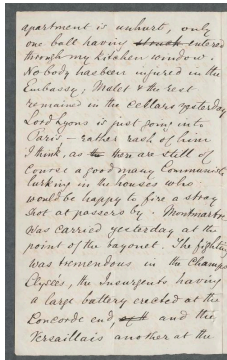 apartment is unhurt, only
one ball having struck entered
through my kitchen window.
No body has been injured in the
Embassy, Malet & the rest
remained in the cellars yesterday
Lord Lyons is just going into
Paris - rather rash of him
I think, as the there are still of
course a good many Communists
lurking in the houses who
would be happy to fire a stray
shot at passers by. Montmartre
was carried yesterday at the
point of the bayonet. The fighting
was tremendous in the Champs
Elysées, the Insurgents having
a large battery erected at the
Concorde end, and the
Versaillais another at the